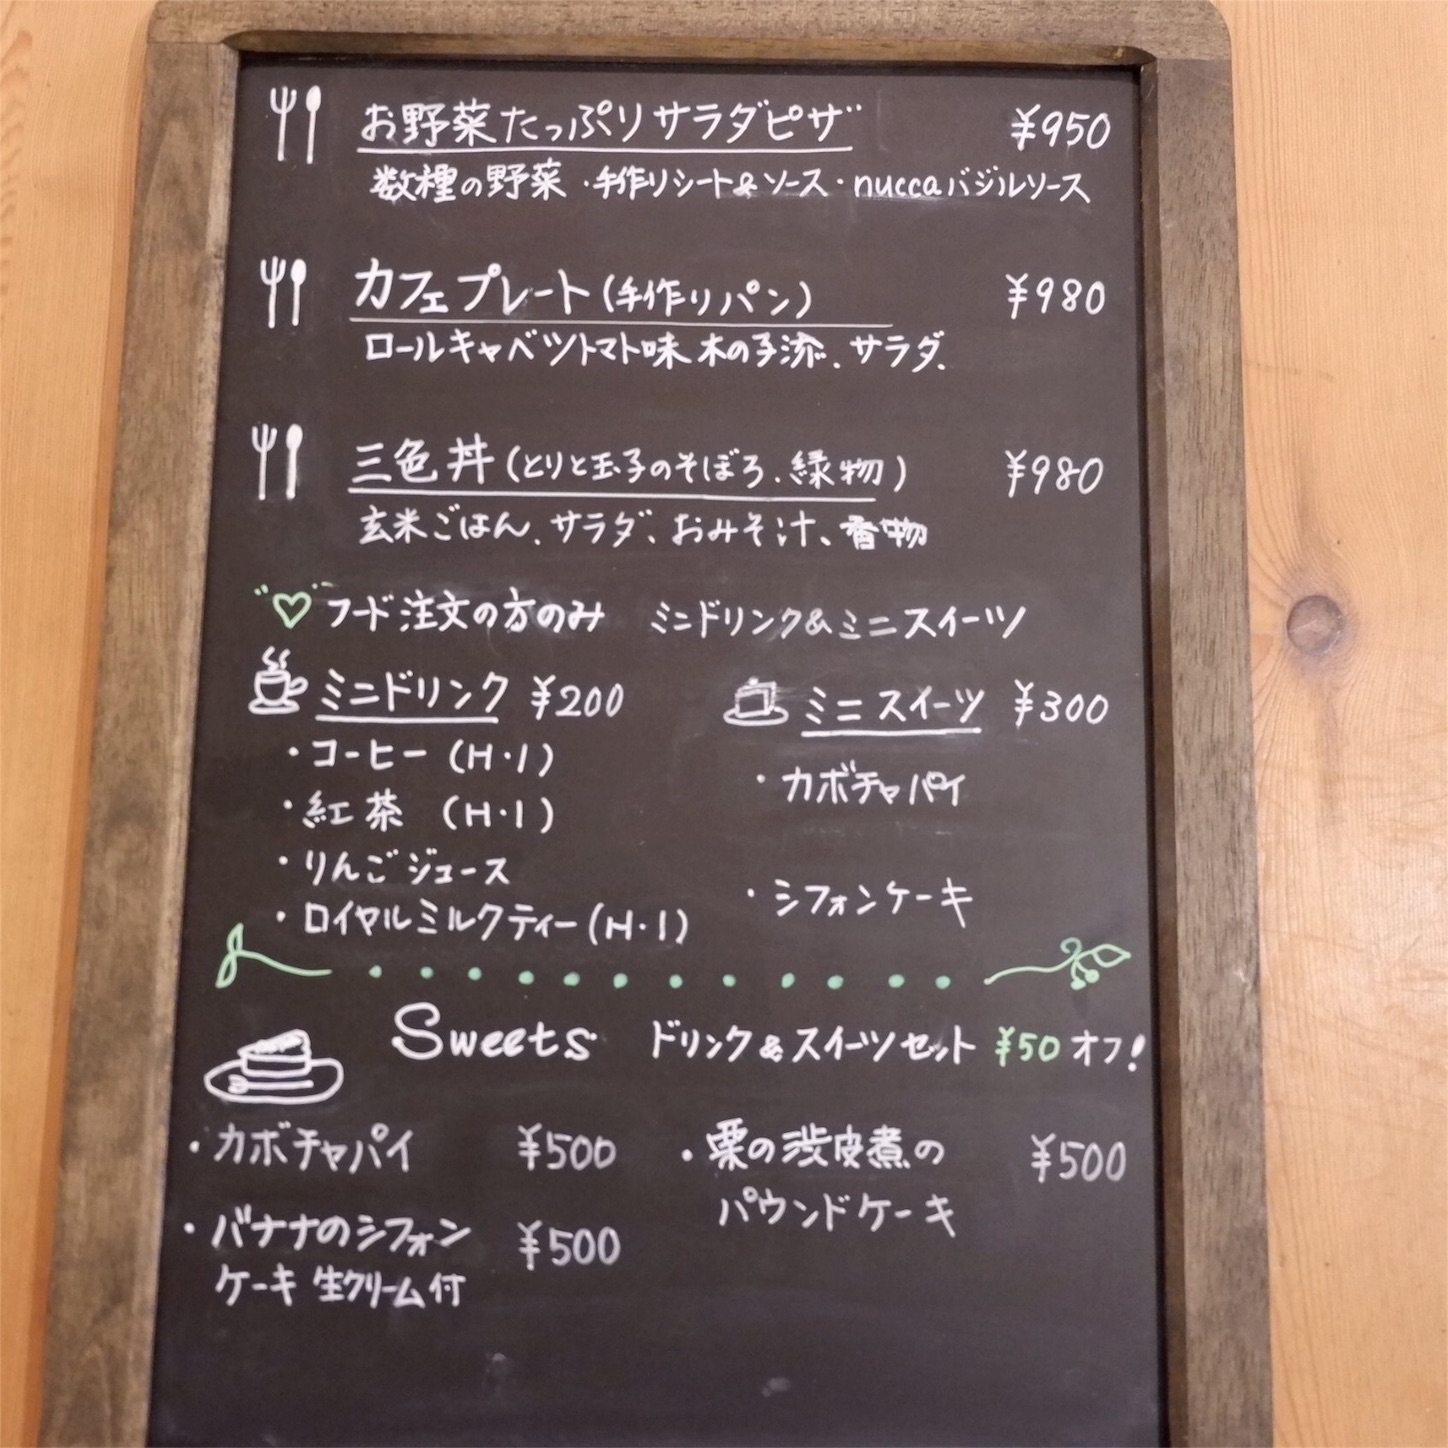 お野菜たっぷりサラダピザ ¥950
数種の野菜・手作りシート&ソース・nuccaバジルソース
カフェプレート(手作りパン) ¥980
ロールキャベツトマト味 木の子添、サラダ、
三色丼(とりと玉子のそぼろ、緑物) ¥980
玄米ごはん、サラダ、おみそ汁、香物
フード注文の方のみ ミニドリンク&ミニスイーツ
ミニドリンク ¥200
・コーヒー(H・I)
・紅茶 (H・I)
・りんごジュース
・ロイヤルミルクティー(H・I)
ミニスイーツ ¥300
・カボチャパイ
・シフォンケーキ
Sweets ドリンク&スイーツセット ¥50オフ!
・カボチャパイ ¥500
・バナナのシフォン ¥500
ケーキ 生クリーム付
・栗の渋皮煮の ¥500
パウンドケーキ